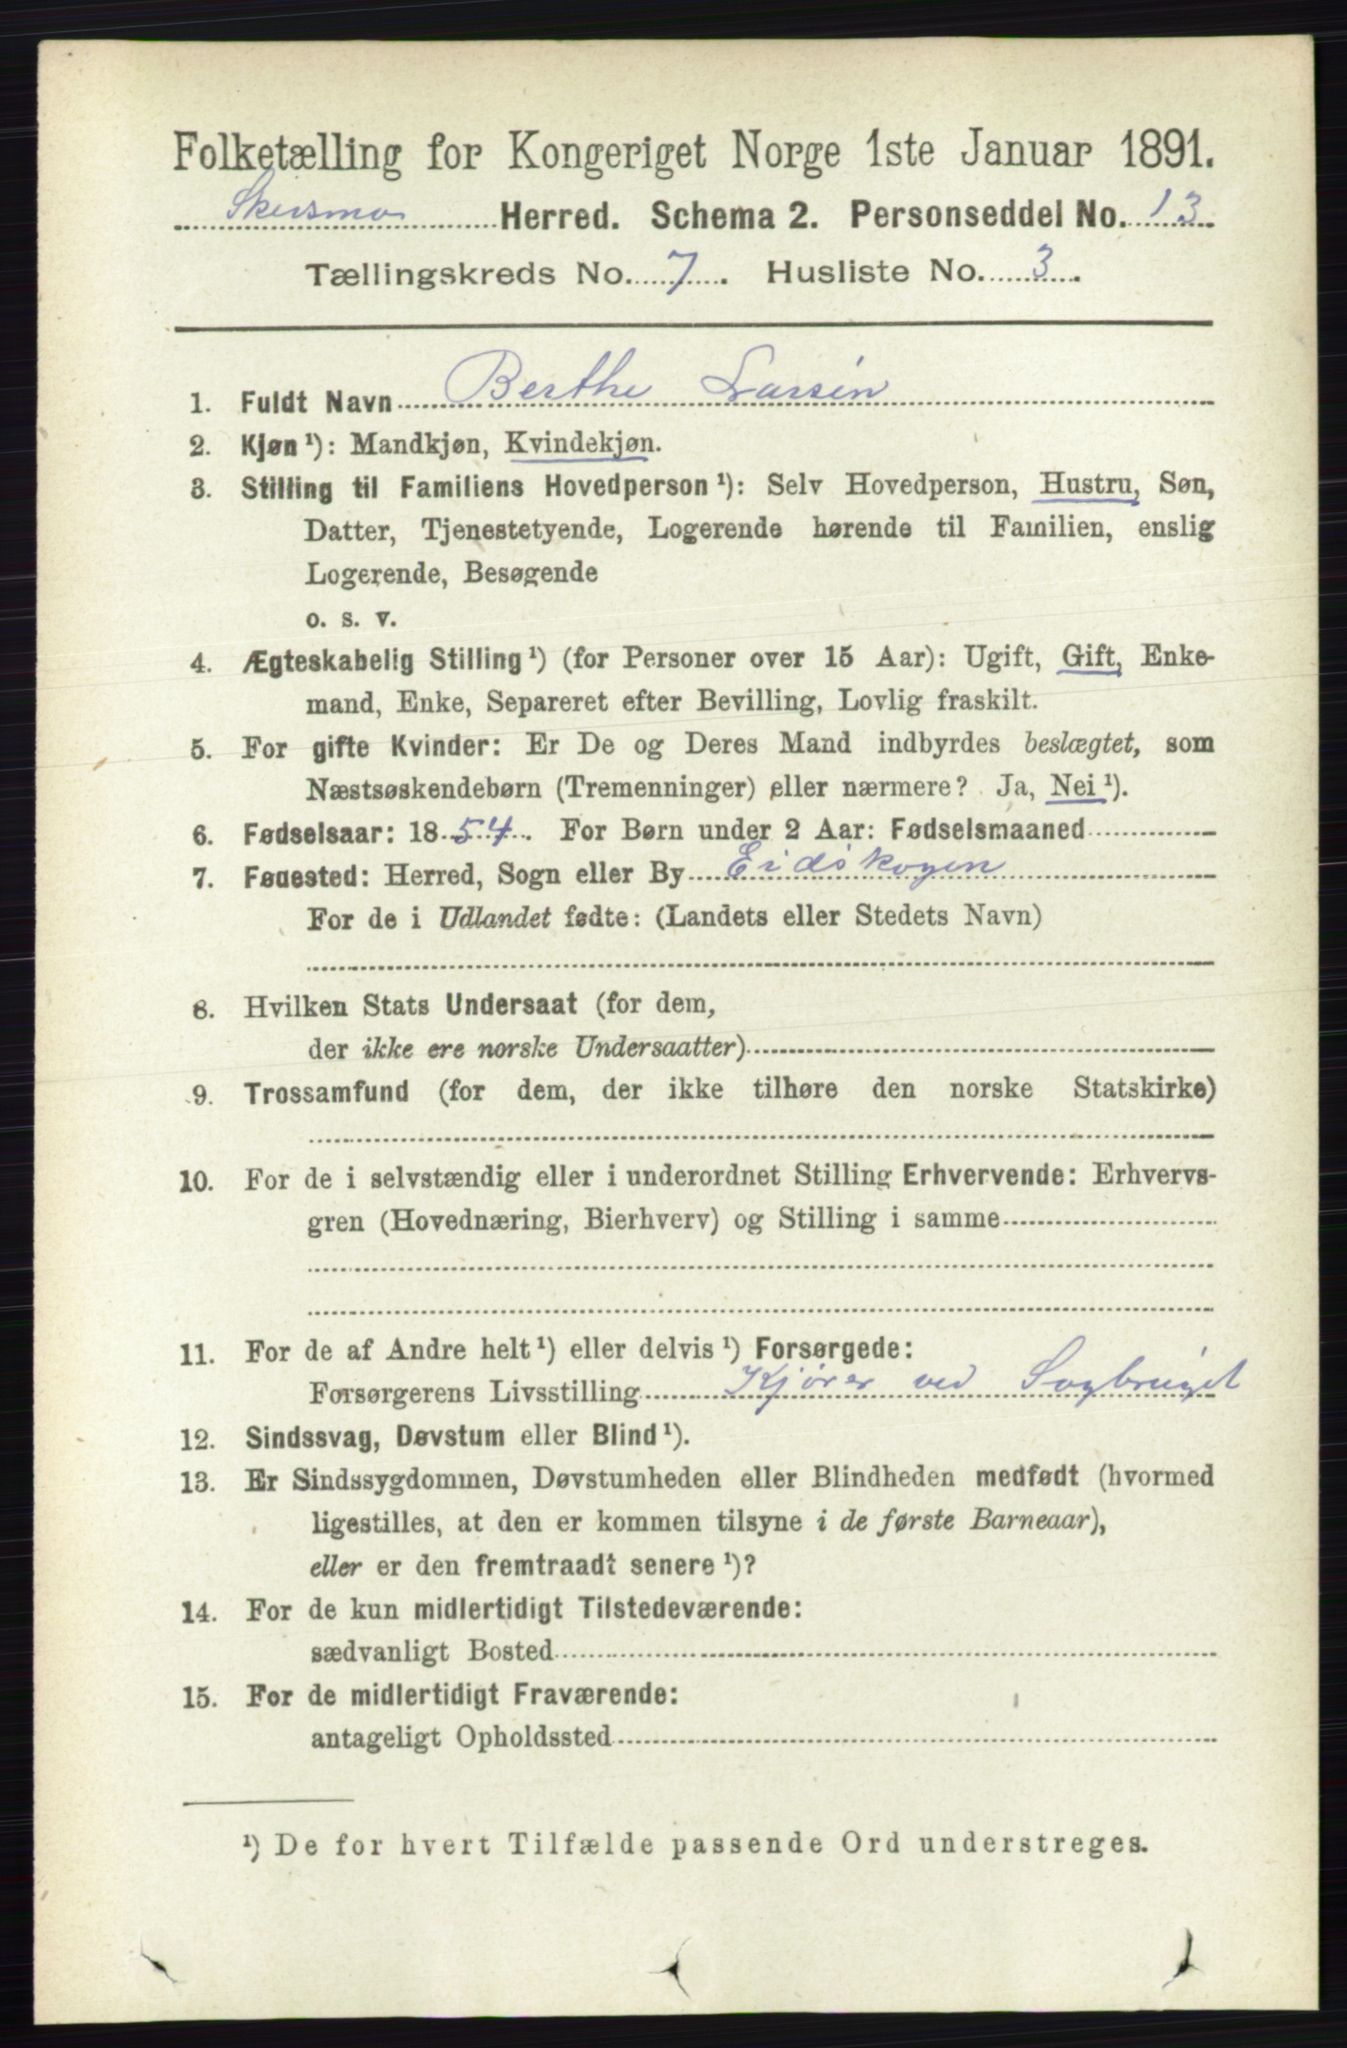 Folketælling for Kongeriget Norge 1ste Januar 1891.
Skedsmo Herred. Schema 2. Personseddel No. 13
Tællingskreds No. 7. Husliste No. 3.
1. Fuldt Navn Berthe Larsen
2. Kjøn ¹): Mandkjøn, Kvindekjøn.
3. Stilling til Familiens Hovedperson ¹): Selv Hovedperson, Hustru, Søn,
Datter, Tjenestetyende, Logerende hørende til Familien, enslig
Logerende, Besøgende
o. s. v.
4. Ægteskabelig Stilling ¹) (for Personer over 15 Aar): Ugift, Gift, Enke-
mand, Enke, Separeret efter Bevilling, Lovlig fraskilt.
5. For gifte Kvinder: Er De og Deres Mand indbyrdes beslægtet, som
Næstsøskendebørn (Tremenninger) eller nærmere? Ja, Nei ¹).
6. Fødselsaar: 1854. For Børn under 2 Aar: Fødselsmaaned
7. Fødested: Herred, Sogn eller By Eidskogen
For de i Udlandet fødte: (Landets eller Stedets Navn)
8. Hvilken Stats Undersaat (for dem,
der ikke ere norske Undersaatter)
9. Trossamfund (for dem, der ikke tilhøre den norske Statskirke)
10. For de i selvstændig eller i underordnet Stilling Erhvervende: Erhvervs-
gren (Hovednæring, Bierhverv) og Stilling i samme
11. For de af Andre helt ¹) eller delvis ¹) Forsørgede:
Forsørgerens Livsstilling Kjører ved Sagbruget
12. Sindssvag, Døvstum eller Blind ¹).
13. Er Sindssygdommen, Døvstumheden eller Blindheden medfødt (hvormed
ligestilles, at den er kommen tilsyne i de første Barneaar),
eller er den fremtraadt senere ¹)?
14. For de kun midlertidigt Tilstedeværende:
sædvanligt Bosted
15. For de midlertidigt Fraværende:
antageligt Opholdssted
¹) De for hvert Tilfælde passende Ord understreges.